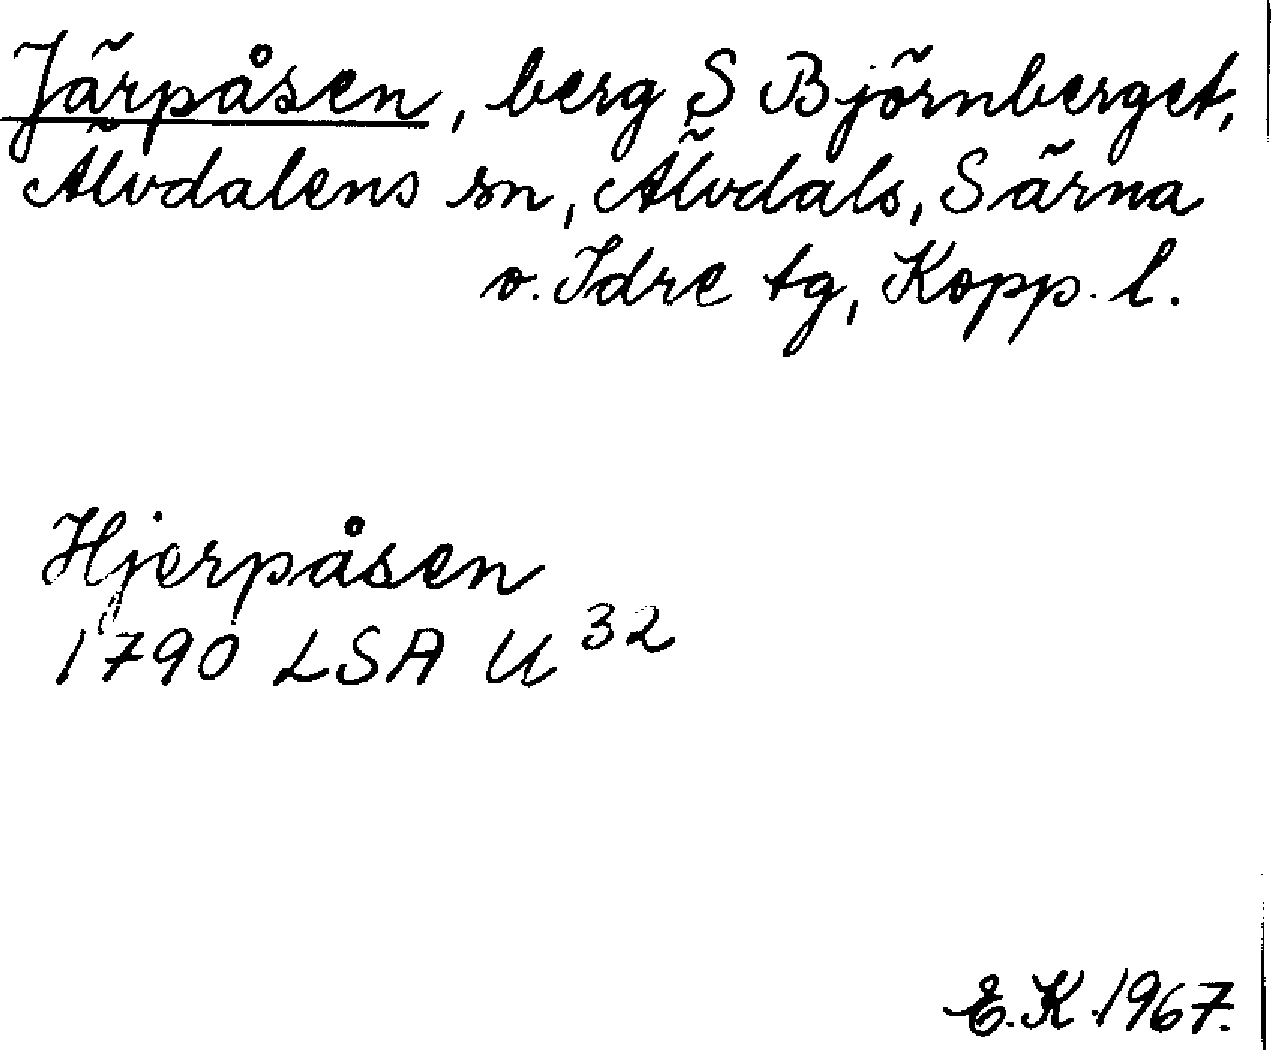 Järpåsen, berg S Björnberget,
Älvdalens sn, Älvdals, Särna
o. Idre tg, Kopp. l.
Hjerpåsen
1790 LSA U 32
E.K. 1967.